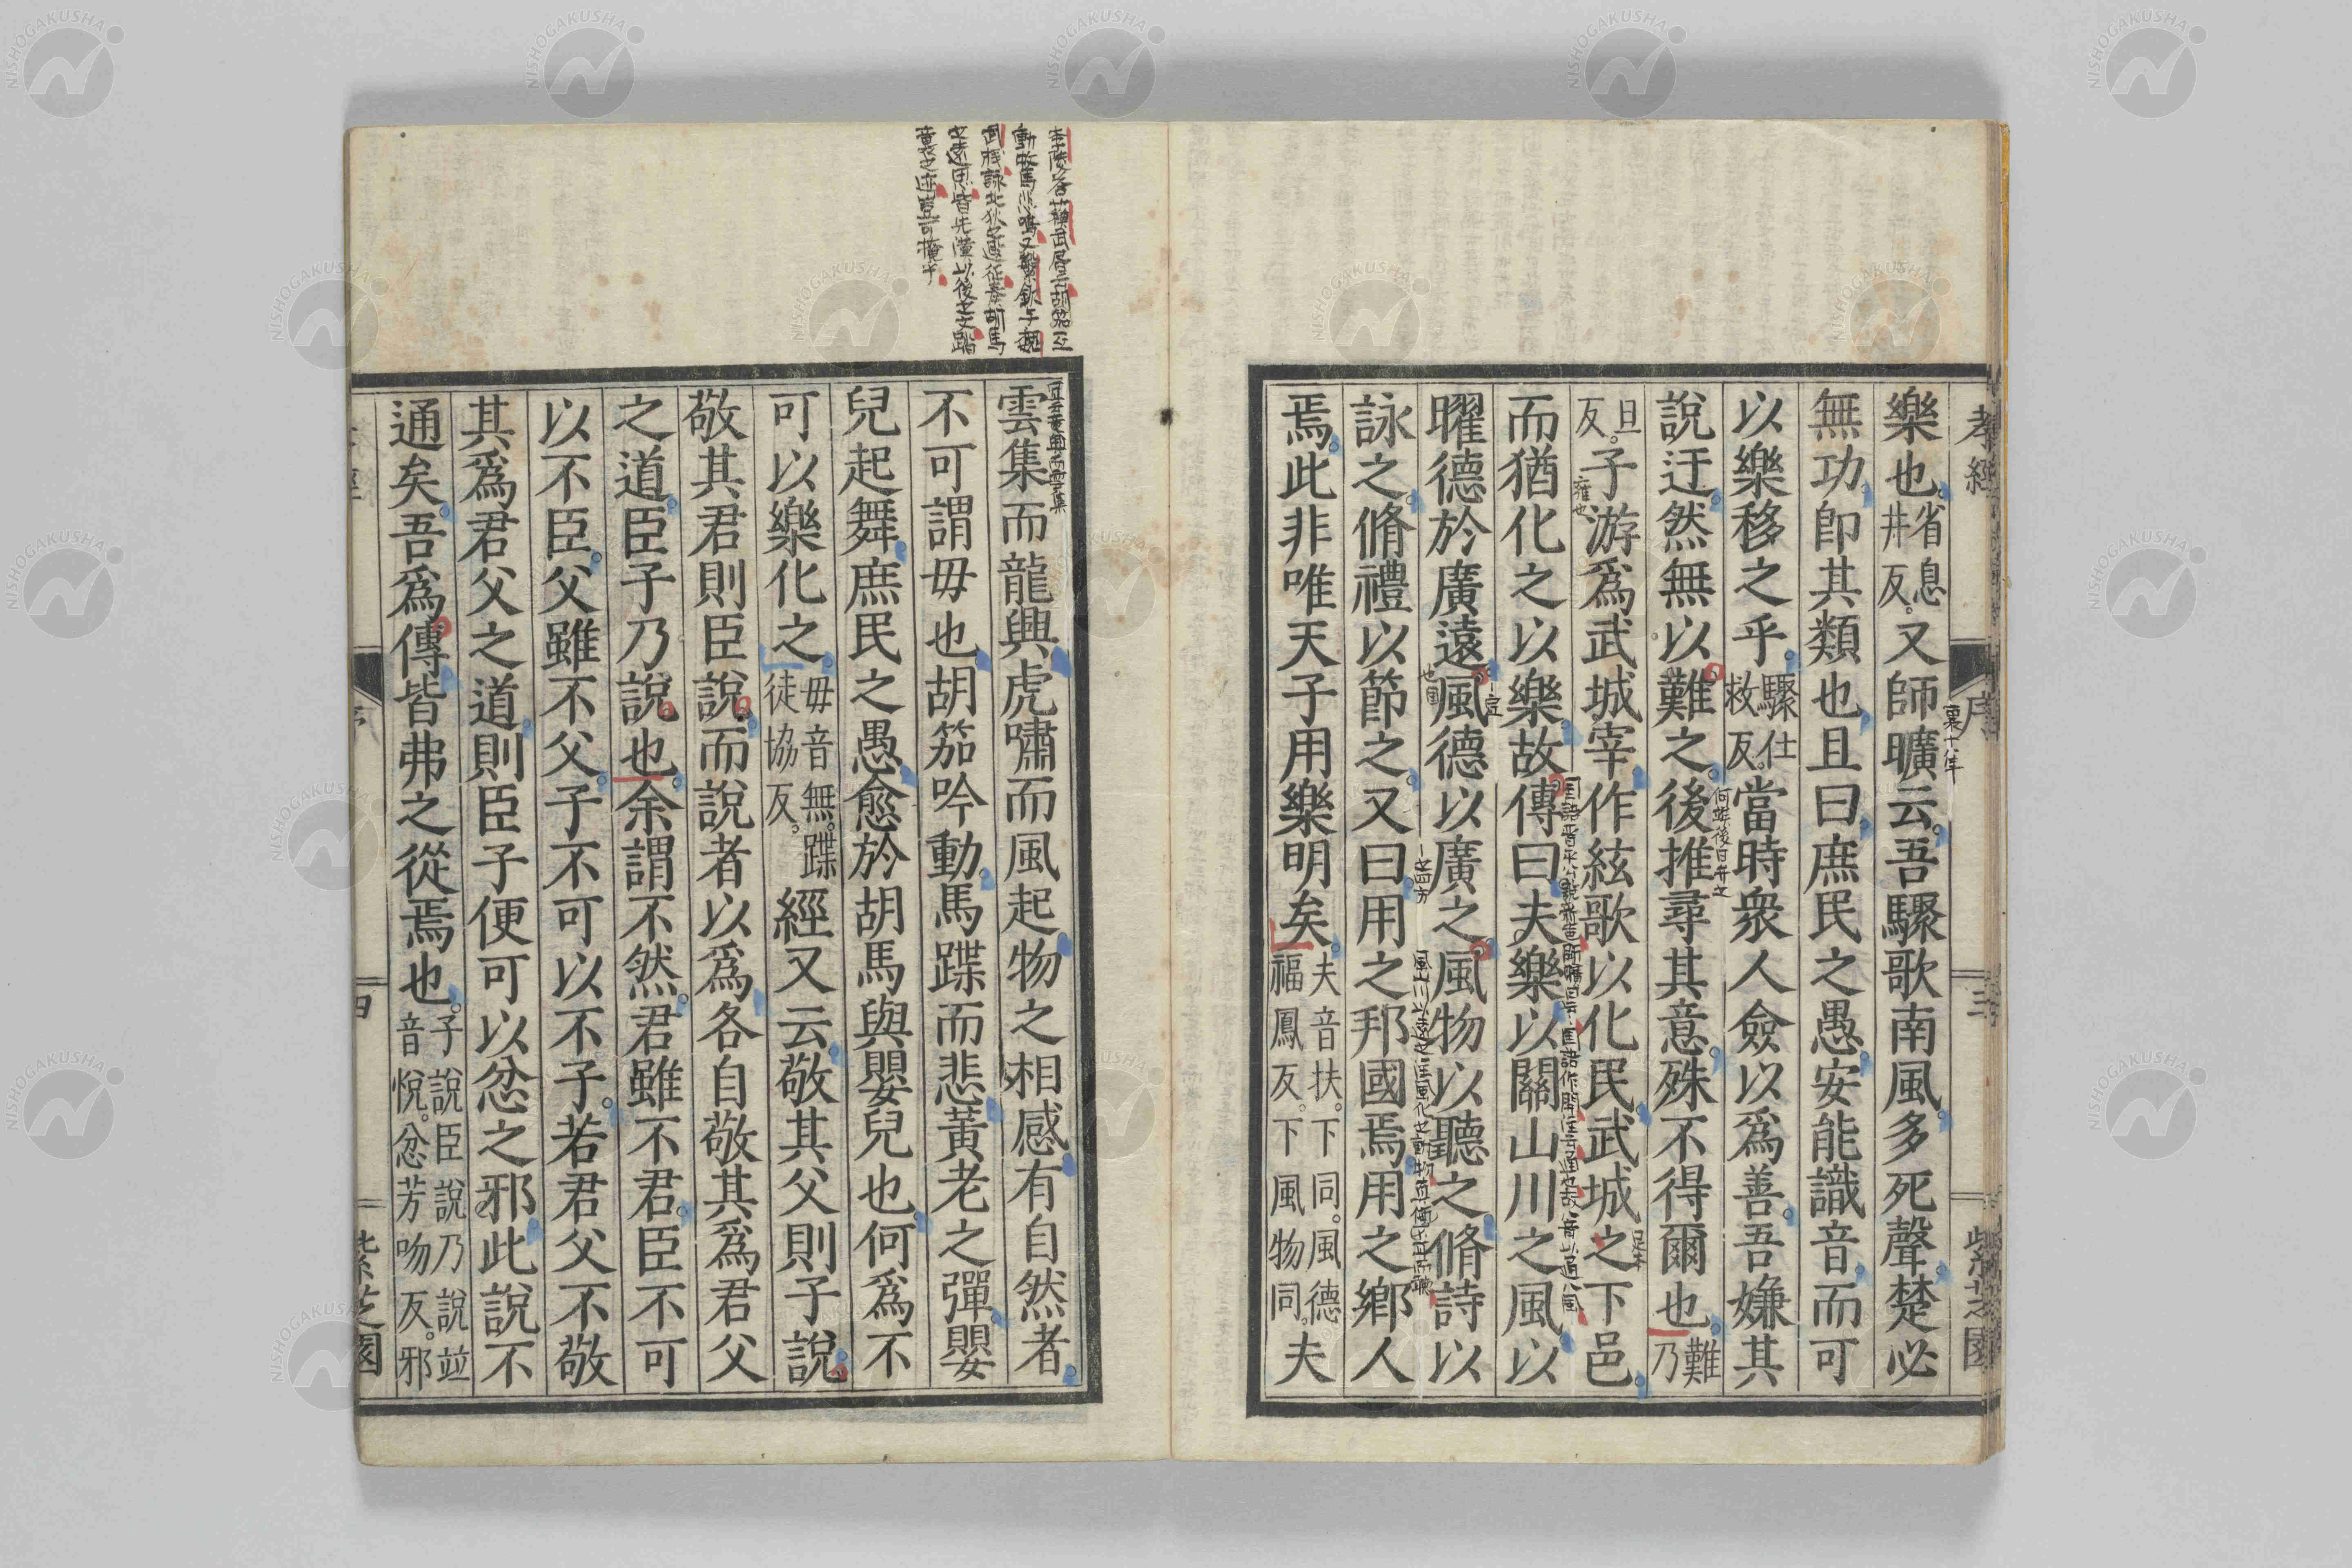 孝經 序 三 紫芝園
樂也省息井反又師曠云吾驟歌南風多死聲楚必
無功卽其類也且曰庶民之愚安能識音而可
以樂移之乎驟仕救反當時衆人僉以爲善吾嫌其
說迂然無以難之後推尋其意殊不得爾也難乃
旦反子游爲武城宰作絃歌以化民武城之下邑
而猶化之以樂故傳曰夫樂以關山川之風以
曜德於廣遠風德以廣之風物以聽之脩詩以
詠之脩禮以節之又曰用之邦國焉用之鄉人
焉此非唯天子用樂明矣夫音扶下同風德福鳳反下風物同夫
雲集而龍興虎嘯而風起物之相感有自然者
不可謂毋也胡笳吟動馬蹀而悲黃老之彈嬰
兒起舞庶民之愚愈於胡馬與嬰兒也何爲不
可以樂化之毋音無蹀徒協反經又云敬其父則子說
敬其君則臣說而說者以爲各自敬其爲君父
之道臣子乃說也余謂不然君雖不君臣不可
以不臣父雖不父子不可以不子若君父不敬
其爲君父之道則臣子便可以忿之邪此說不
通矣吾爲傳皆弗之從焉也子說臣說乃說竝音悅忿芳吻反邪
四 紫芝園
NISHOGAKUSHA